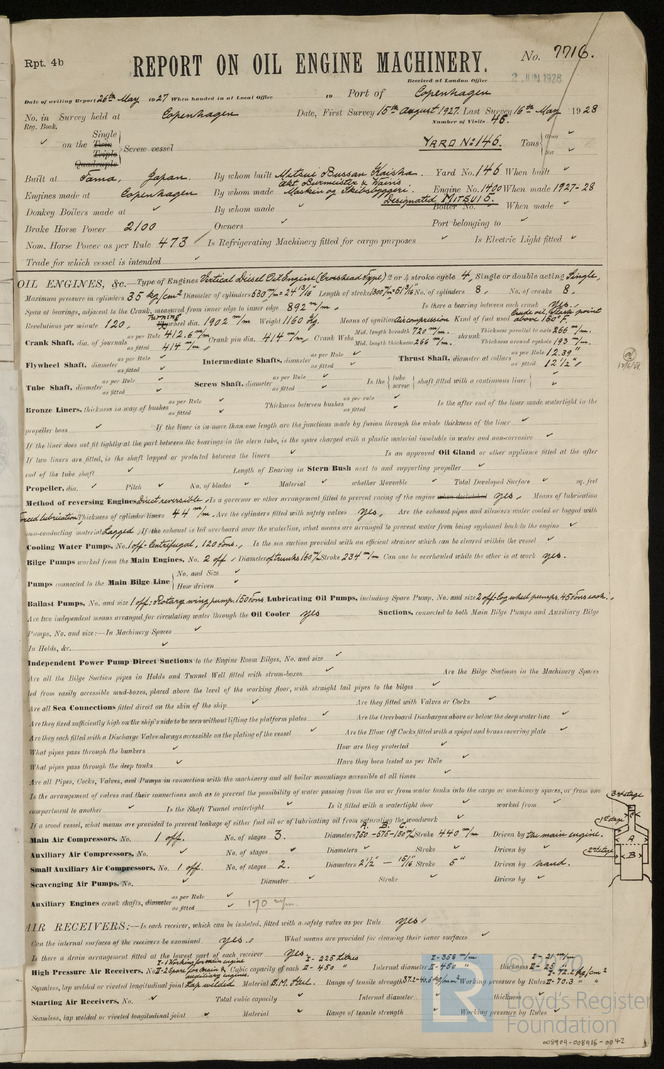 Rpt. 4b
REPORT ON OIL ENGINE MACHINERY.
No. 7716.
Received at London Office
2 JUN 1928
Date of writing Report 26th May 1927 When handed in at Local Office 19 Port of Copenhagen
No. in Survey held at Copenhagen Date, First Survey 15th August 1927. Last Survey 16th May 1928
Reg. Book. Number of Visits 46.
on the Single Twin Triple Quadruple Screw vessel YARD No 146. Tons Gross Net
Built at Tama, Japan. By whom built Mitsui Bussan Kaisha. Yard No. 146 When built
Engines made at Copenhagen By whom made Akt. Burmeister & Wains Maskin og Skibsbyggeri. Engine No. 1400 When made 1927-28
Designated MITSUI 5.
Donkey Boilers made at By whom made Boiler No. When made
Brake Horse Power 2100 Owners Port belonging to
Nom. Horse Power as per Rule 473 Is Refrigerating Machinery fitted for cargo purposes Is Electric Light fitted
Trade for which vessel is intended
OIL ENGINES, &c.—Type of Engines Vertical Diesel Oil Engine (Crosshead Type) 2 or 4 stroke cycle 4, Single or double acting Single.
Maximum pressure in cylinders 35 kg/cm² Diameter of cylinders 630 m/m = 24 13/16" Length of stroke 1300 m/m = 51 3/16" No. of cylinders 8. No. of cranks 8.
Span of bearings, adjacent to the Crank, measured from inner edge to inner edge 892 m/m. Is there a bearing between each crank Yes.
Revolutions per minute 120. Turning wheel dia. 1902 m/m Weight 1160 kg. Means of ignition Air compression Kind of fuel used Crude oil, flash point above 150° F.
Crank Shaft, dia. of journals as per Rule 412.6 m/m as fitted 414 m/m Crank pin dia. 414 m/m Crank Webs Mid. length breadth 720 m/m. Mid. length thickness 266 m/m. shrunk Thickness parallel to axis 266 m/m. Thickness around eyehole 193 m/m.
Flywheel Shaft, diameter as per Rule as fitted Intermediate Shafts, diameter as per Rule as fitted Thrust Shaft, diameter at collars as per Rule 12.39" as fitted 12 1/2"
Tube Shaft, diameter as per Rule as fitted Screw Shaft, diameter as per Rule as fitted Is the tube screw shaft fitted with a continuous liner
Bronze Liners, thickness in way of bushes as per Rule as fitted Thickness between bushes as per rule as fitted Is the after end of the liner made watertight in the
propeller boss If the liner is in more than one length are the junctions made by fusion through the whole thickness of the liner
If the liner does not fit tightly at the part between the bearings in the stern tube, is the space charged with a plastic material insoluble in water and non-corrosive
If two liners are fitted, is the shaft lapped or protected between the liners Is an approved Oil Gland or other appliance fitted at the after
end of the tube shaft Length of Bearing in Stern Bush next to and supporting propeller
Propeller, dia. Pitch No. of blades Material whether Moveable Total Developed Surface sq. feet
Method of reversing Engines Direct reversible Is a governor or other arrangement fitted to prevent racing of the engine when declutched yes. Means of lubrication
Forced lubrication Thickness of cylinder liners 44 m/m. Are the cylinders fitted with safety valves yes. Are the exhaust pipes and silencers water cooled or lagged with
non-conducting material Lagged. If the exhaust is led overboard near the waterline, what means are arranged to prevent water from being syphoned back to the engine
Cooling Water Pumps, No. 1 off-centrifugal, 120 tons. Is the sea suction provided with an efficient strainer which can be cleared within the vessel
Bilge Pumps worked from the Main Engines, No. 2 off Diameter of trunks 160 m/m Stroke 234 m/m Can one be overhauled while the other is at work yes.
Pumps connected to the Main Bilge Line No. and Size
How driven
Ballast Pumps, No. and size 1 off: Rotary wing pump. 150 tons Lubricating Oil Pumps, including Spare Pump, No. and size 2 off cog wheel pumps. 45 tons each.
Are two independent means arranged for circulating water through the Oil Cooler yes Suctions, connected to both Main Bilge Pumps and Auxiliary Bilge
Pumps, No. and size:—In Machinery Spaces
In Holds, &c.
Independent Power Pump Direct Suctions to the Engine Room Bilges, No. and size
Are all the Bilge Suction pipes in Holds and Tunnel Well fitted with strum-boxes Are the Bilge Suctions in the Machinery Spaces
led from easily accessible mud-boxes, placed above the level of the working floor, with straight tail pipes to the bilges
Are all Sea Connections fitted direct on the skin of the ship Are they fitted with Valves or Cocks
Are they fixed sufficiently high on the ship's side to be seen without lifting the platform plates Are the Overboard Discharges above or below the deep water line
Are they each fitted with a Discharge Valve always accessible on the plating of the vessel Are the Blow Off Cocks fitted with a spigot and brass covering plate
What pipes pass through the bunkers How are they protected
What pipes pass through the deep tanks Have they been tested as per Rule
Are all Pipes, Cocks, Valves, and Pumps in connection with the machinery and all boiler mountings accessible at all times
Is the arrangement of valves and their connections such as to prevent the possibility of water passing from the sea or from water tanks into the cargo or machinery spaces, or from one
compartment to another Is the Shaft Tunnel watertight Is it fitted with a watertight door worked from
If a wood vessel, what means are provided to prevent leakage of either fuel oil or of lubricating oil from saturating the woodwork
A. B. C.
Main Air Compressors, No. 1 off. No. of stages 3. Diameters 760-675-150 m/m Stroke 440 m/m Driven by the main engine.
Auxiliary Air Compressors, No. No. of stages Diameters Stroke Driven by
Small Auxiliary Air Compressors, No. 1 off. No. of stages 2. Diameters 2 1/2" — 15/16" Stroke 5" Driven by hand.
Scavenging Air Pumps, No. Diameter Stroke Driven by
Auxiliary Engines crank shafts, diameter as per Rule as fitted 170 m/m.
3rd stage
1st stage
2nd stage
C
A
B
AIR RECEIVERS:—Is each receiver, which can be isolated, fitted with a safety valve as per Rule yes.
Can the internal surfaces of the receivers be examined yes. What means are provided for cleaning their inner surfaces
Is there a drain arrangement fitted at the lowest part of each receiver Yes.
High Pressure Air Receivers, No. I-1 Working for main engine II-2 Spare for main & auxiliary engines Cubic capacity of each I-225 Litres II-450 " Internal diameter I-356 m/m II-480 " thickness II-25 "
Seamless, lap welded or riveted longitudinal joint Lap welded Material S.M. Steel. Range of tensile strength Working pressure by Rules I-72.2 kg/cm² II-70.3 "
Starting Air Receivers, No. Total cubic capacity Internal diameter thickness
Seamless, lap welded or riveted longitudinal joint Material Range of tensile strength Working pressure by Rules
© 2020
LR
Lloyd's Register
Foundation
008909-008916-0042